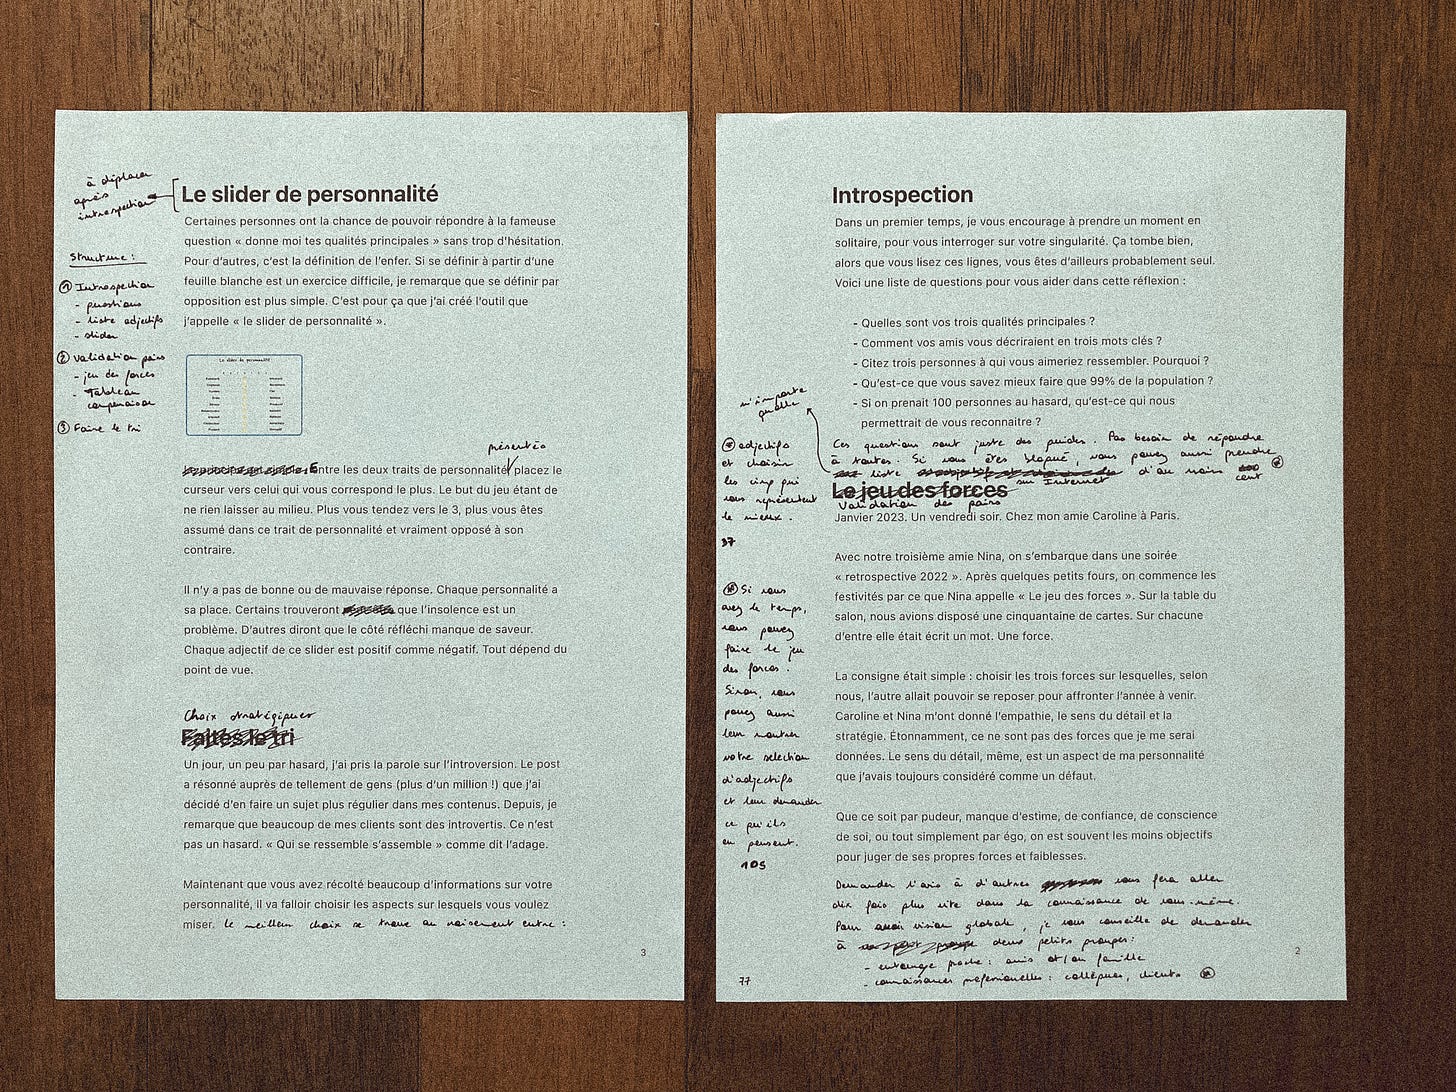 à déplacer
après
introspection
Le slider de personnalité
Certaines personnes ont la chance de pouvoir répondre à la fameuse
question « donne moi tes qualités principales » sans trop d'hésitation.
Pour d'autres, c'est la définition de l'enfer. Si se définir à partir d'une
feuille blanche est un exercice difficile, je remarque que se définir par
opposition est plus simple. C'est pour ça que j'ai créé l'outil que
j'appelle « le slider de personnalité ».
Structure :
① Introspection
- questions
- liste adjectifs
- slider
② Validation pairs
- jeu des forces
- Tableau
comparaison
③ Faire le tri
Le slider de personnalité
présentés
Entre les deux traits de personnalité placez le
curseur vers celui qui vous correspond le plus. Le but du jeu étant de
ne rien laisser au milieu. Plus vous tendez vers le 3, plus vous êtes
assumé dans ce trait de personnalité et vraiment opposé à son
contraire.
Il n'y a pas de bonne ou de mauvaise réponse. Chaque personnalité a
sa place. Certains trouveront que l'insolence est un
problème. D'autres diront que le côté réfléchi manque de saveur.
Chaque adjectif de ce slider est positif comme négatif. Tout dépend du
point de vue.
Choix stratégiques
Faites le tri
Un jour, un peu par hasard, j'ai pris la parole sur l'introversion. Le post
a résonné auprès de tellement de gens (plus d'un million !) que j'ai
décidé d'en faire un sujet plus régulier dans mes contenus. Depuis, je
remarque que beaucoup de mes clients sont des introvertis. Ce n'est
pas un hasard. « Qui se ressemble s'assemble » comme dit l'adage.
Maintenant que vous avez récolté beaucoup d'informations sur votre
personnalité, il va falloir choisir les aspects sur lesquels vous voulez
miser. Le meilleur choix se trouve au croisement entre :
3
Introspection
Dans un premier temps, je vous encourage à prendre un moment en
solitaire, pour vous interroger sur votre singularité. Ça tombe bien,
alors que vous lisez ces lignes, vous êtes d'ailleurs probablement seul.
Voici une liste de questions pour vous aider dans cette réflexion :
- Quelles sont vos trois qualités principales ?
- Comment vos amis vous décriraient en trois mots clés ?
- Citez trois personnes à qui vous aimeriez ressembler. Pourquoi ?
- Qu'est-ce que vous savez mieux faire que 99% de la population ?
- Si on prenait 100 personnes au hasard, qu'est-ce qui nous
permettrait de vous reconnaitre ?
n'importe
quelle
Ces questions sont juste des guides. Pas besoin de répondre
à toutes. Si vous êtes bloqué, vous pouvez aussi prendre
liste d'au moins cent
sur Internet
adjectifs
et choisir
les cinq qui
vous représentent
le mieux.
37
Le jeu des forces
Validation des pairs
Janvier 2023. Un vendredi soir. Chez mon amie Caroline à Paris.
Avec notre troisième amie Nina, on s'embarque dans une soirée
« retrospective 2022 ». Après quelques petits fours, on commence les
festivités par ce que Nina appelle « Le jeu des forces ». Sur la table du
salon, nous avions disposé une cinquantaine de cartes. Sur chacune
d'entre elle était écrit un mot. Une force.
La consigne était simple : choisir les trois forces sur lesquelles, selon
nous, l'autre allait pouvoir se reposer pour affronter l'année à venir.
Caroline et Nina m'ont donné l'empathie, le sens du détail et la
stratégie. Étonnamment, ce ne sont pas des forces que je me serai
données. Le sens du détail, même, est un aspect de ma personnalité
que j'avais toujours considéré comme un défaut.
Que ce soit par pudeur, manque d'estime, de confiance, de conscience
de soi, ou tout simplement par égo, on est souvent les moins objectifs
pour juger de ses propres forces et faiblesses.
Si vous
avez le temps,
vous pouvez
faire le jeu
des forces.
Sinon, vous
pouvez aussi
leur montrer
votre selection
d'adjectifs
et leur demander
ce qu'ils
en pensent.
105
Demander l'avis à d'autres vous fera aller
dix fois plus vite dans la connaissance de vous-même.
Pour avoir vision globale, je vous conseille de demander
à deux petits groupes :
- entourage proche : amis et/ou famille
- connaissances professionnelles : collègues, clients
77
2